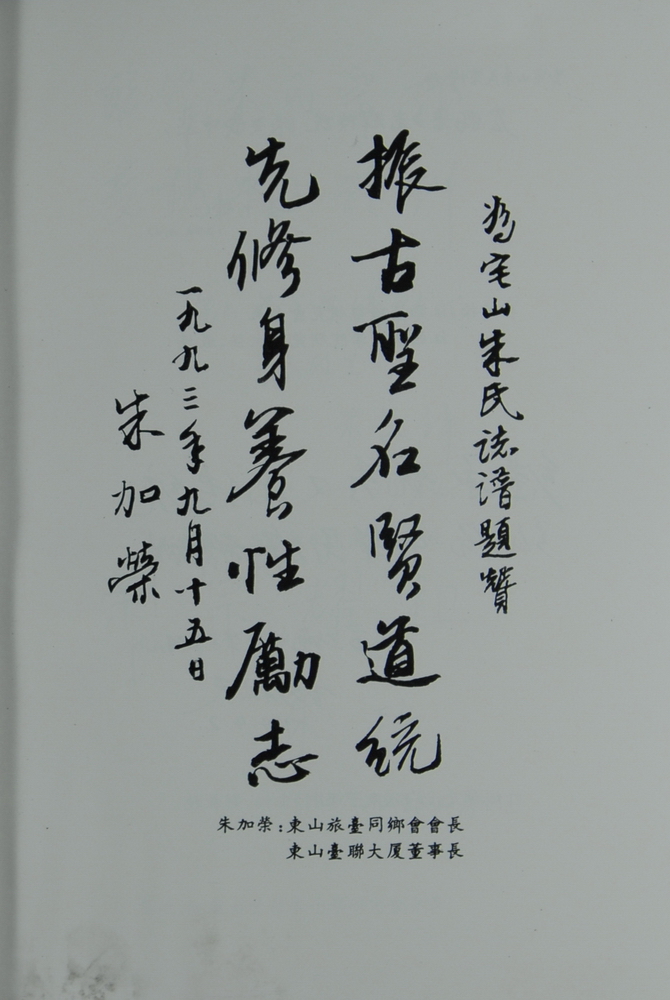 為宅山朱氏誌譜題贊
振古聖名賢道統
先修身養性勵志
一九九三年九月十五日
朱加榮
朱加榮：東山旅臺同鄉會會長
東山臺聯大厦董事長